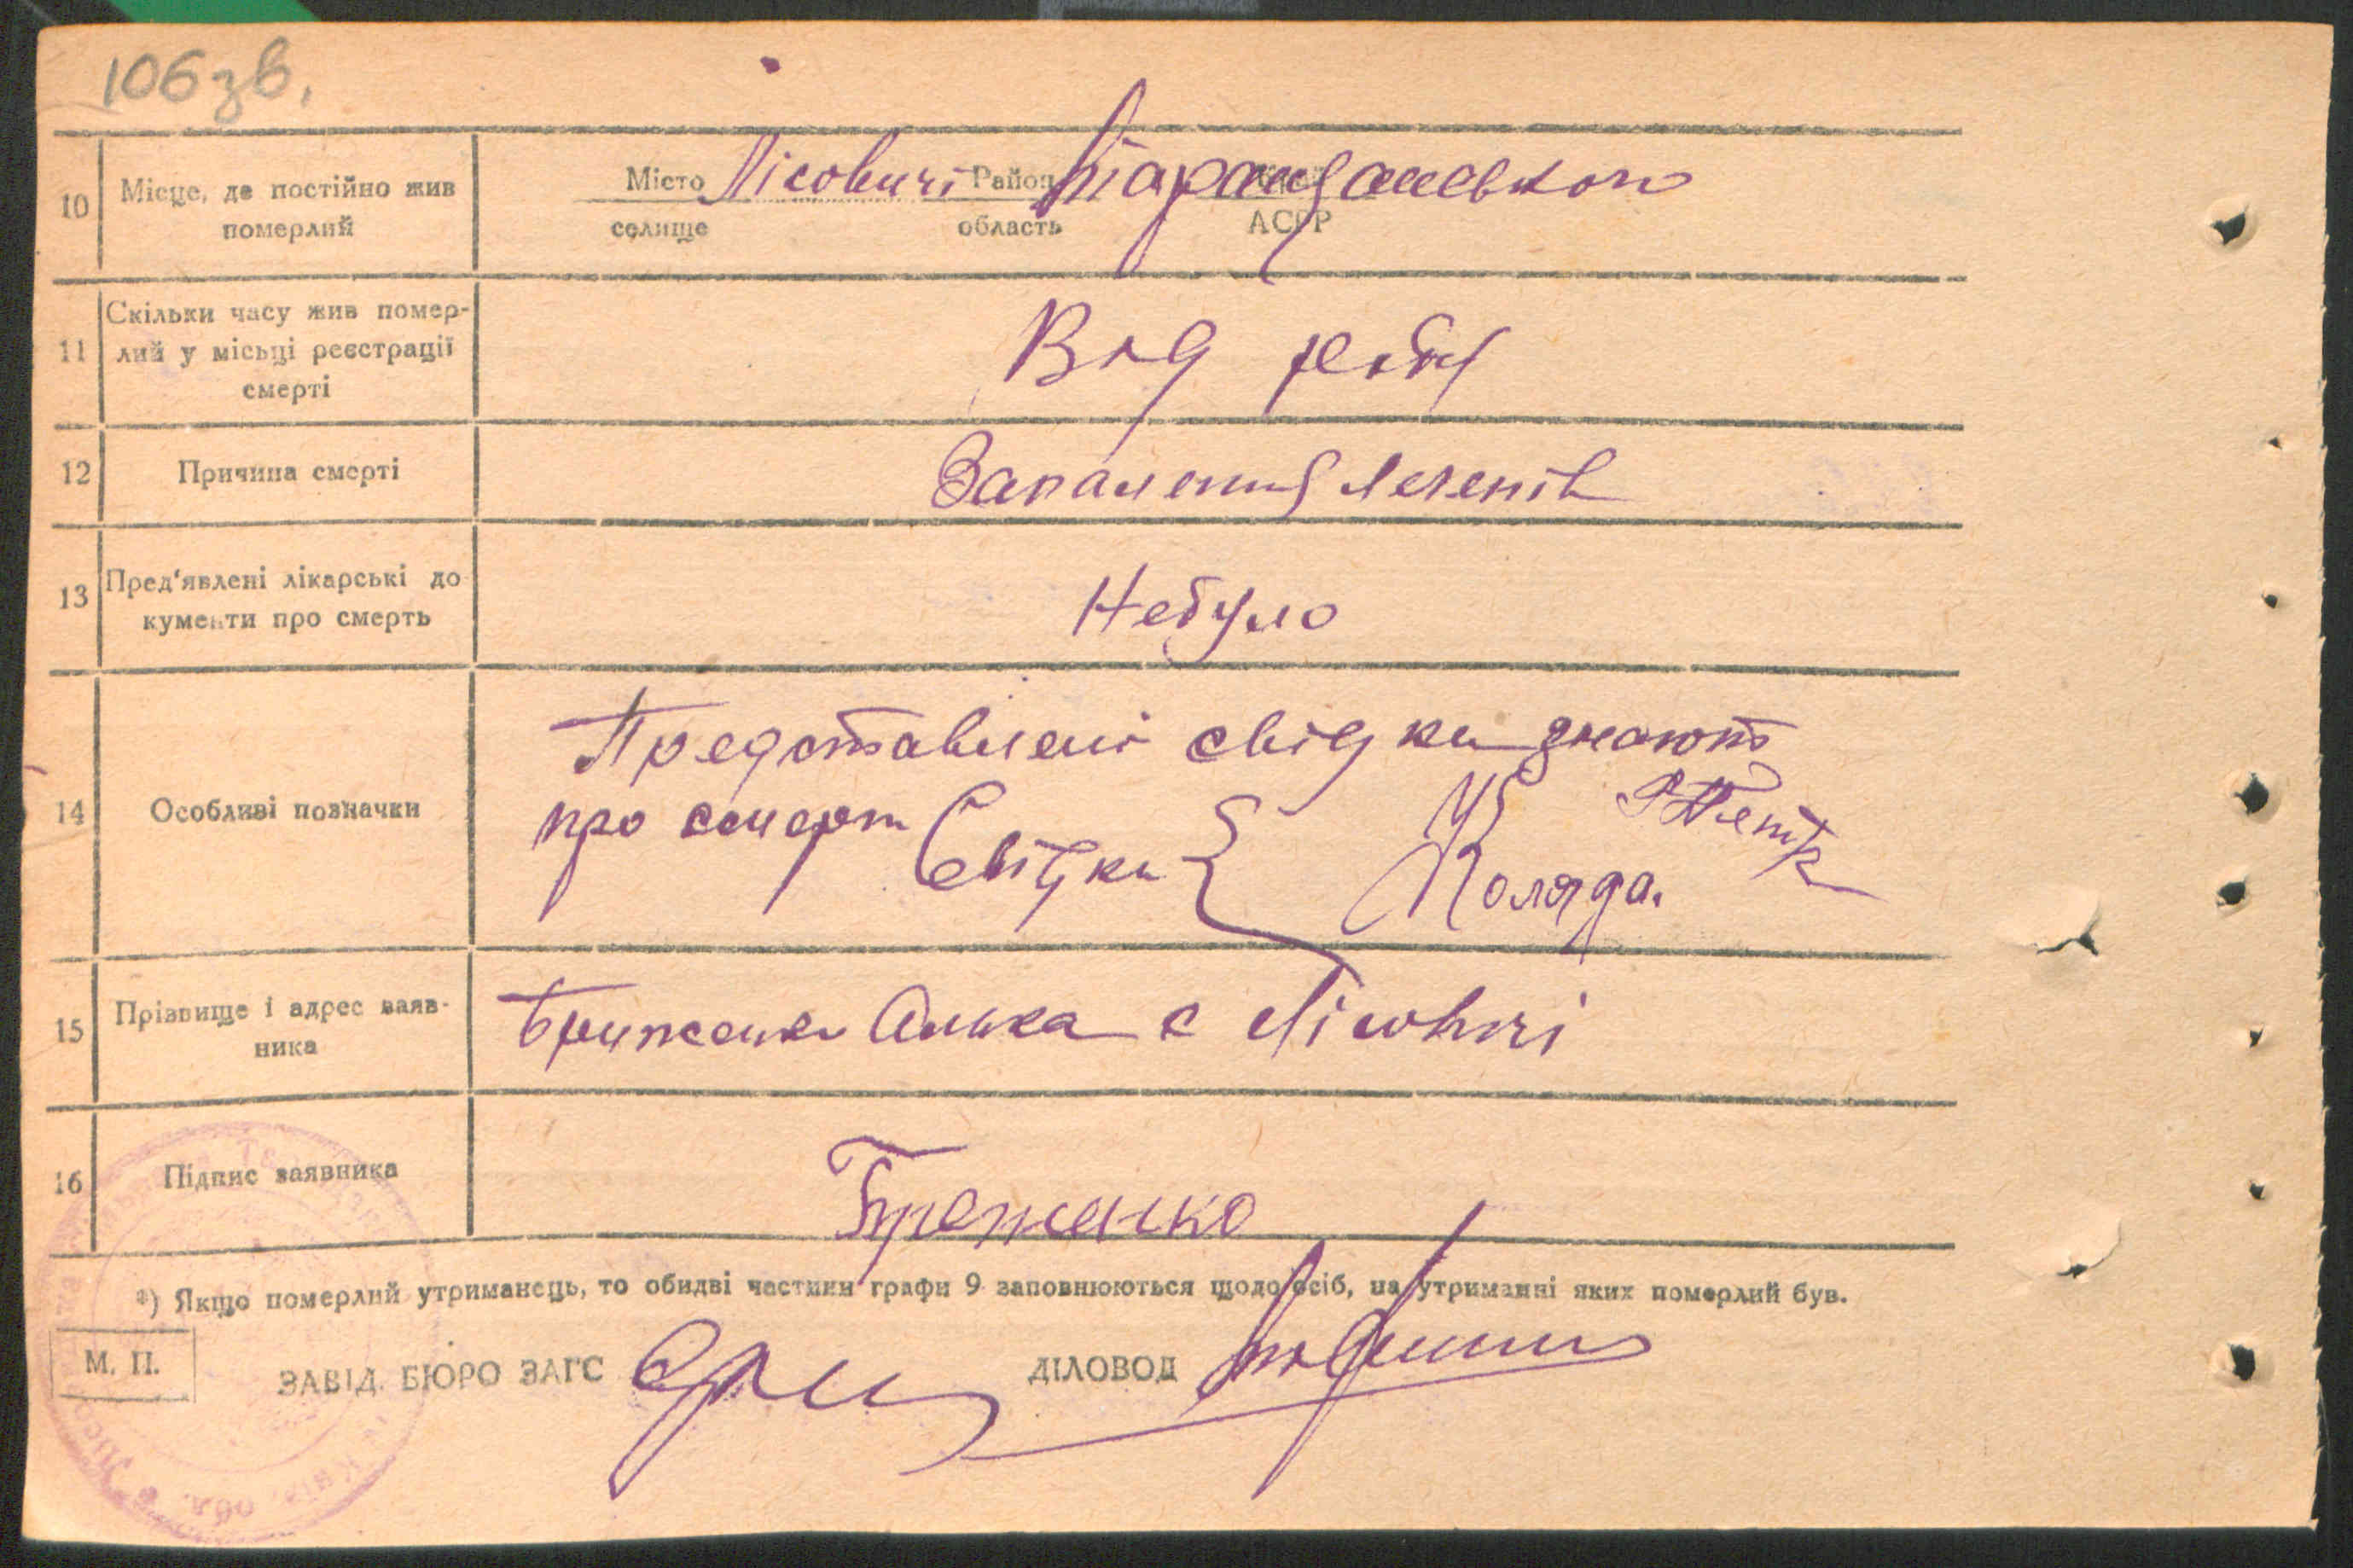 106 зв.
10 Місце, де постійно жив померлий
Місто Лісовичі Район Таращанського
селище область АСРР
11 Скільки часу жив помер-
лий у місьці реєстрації
смерті
Від роду
12 Причина смерті
Запалення легенів
13 Пред'явлені лікарські до
кументи про смерть
Небуло
14 Особливі позначки
Представлені свідки знають
про смерт Свідки
Коляда.
15 Прізвище і адрес заяв-
ника
с Лісовичі
16 Підпис заявника
*) Якщо померлий утриманець, то обидві частини графи 9 заповнюються щодо осіб, на утриманні яких померлий був.
М. П.
ЗАВІД. БЮРО ЗАГС ДІЛОВОД